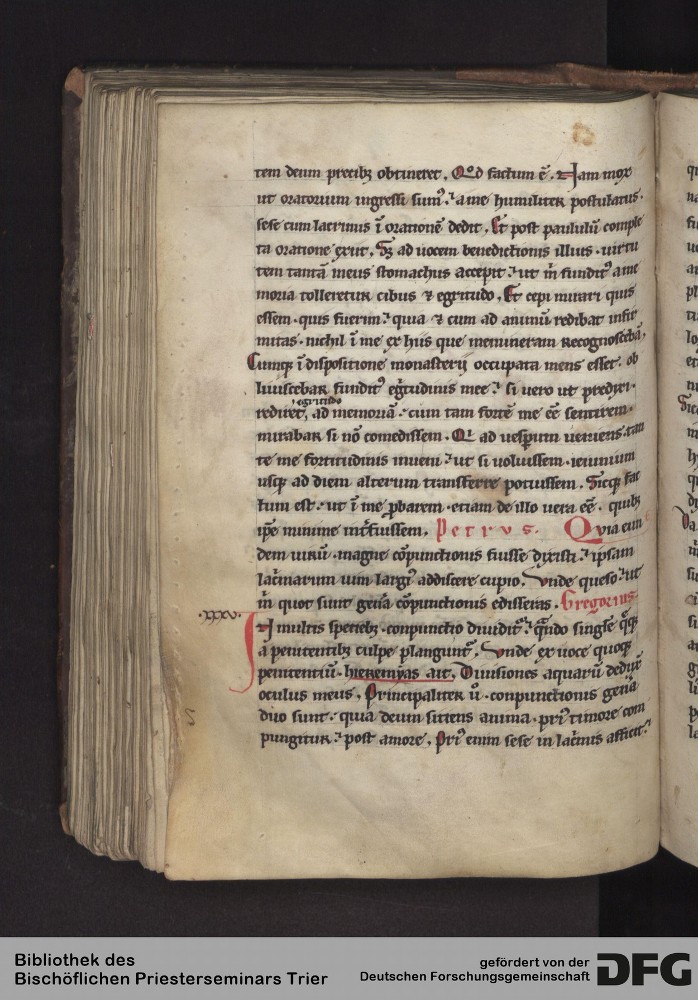 tem deum precibꝫ obtineret. Qd̊ factum ē. Nam mox
ut oratorium ingressi sumꝰ. a me humiliter postulatus.
sese cum lacrimis ī orationē dedit. Et post paululū comple
ta oratione exiit. Sꝫ ad uocem benedictionis illius. uirtu
tem tantā meus stomachus accepit. ut m̄ funditꝰ a me
moria tolleretur cibus ⁊ egritudo. Et cepi mirari quis
essem. quis fuerim. quia ⁊ cum ad animū redibat infir
mitas. nichil ī me ex hiis que memineram recognoscebā.
Cumqꝫ ī dispositione monasterij occupata mens esset. ob
liuiscebar funditꝰ egͥtudinis mee. si uero ut predixi.
rediret egritudo, ad memoriā. cum tam fortē me eē sentirem.
mirabar si nō comedissem. Qi ad uesꝑum ueniens. tan
te me fortitudinis inueni. ut si voluissem. ieiunium
usqꝫ ad diem alterum transferre potuissem. Sicqꝫ fac
tum est. ut ī me ꝓbarem. etiam de illo uera eē. quibꝫ
ip̄e minime int̄fuissem. Petrus. Quia eun
dem uirū. magne cōpunctionis fuisse dixisti. ipsam
lac̄marum uim largiꝰ addiscere cupio. Vnde queso. ut
m̄ quot sunt gen̄a cōpunctionis edisseras. Gregorius.
.xxxv.
IN multis speciebꝫ. conpunctio diuidit᷑. qn̄do singl̄e qͥqꝫ
a penitentibꝫ culpe plangunt᷑. Vnde ex uoce quoqꝫ
penitentiū. hieremyas ait. Diuisiones aquarū deduxit
oculus meus. Principaliter ū. conpunctionis gen̄a
duo sunt. quia deum sitiens anima. priꝰ timore com
pungitur. post amore. Priꝰ enim sese in lac̄mis afficit.
Bibliothek des
Bischöflichen Priesterseminars Trier
gefördert von der
Deutschen Forschungsgemeinschaft
DFG